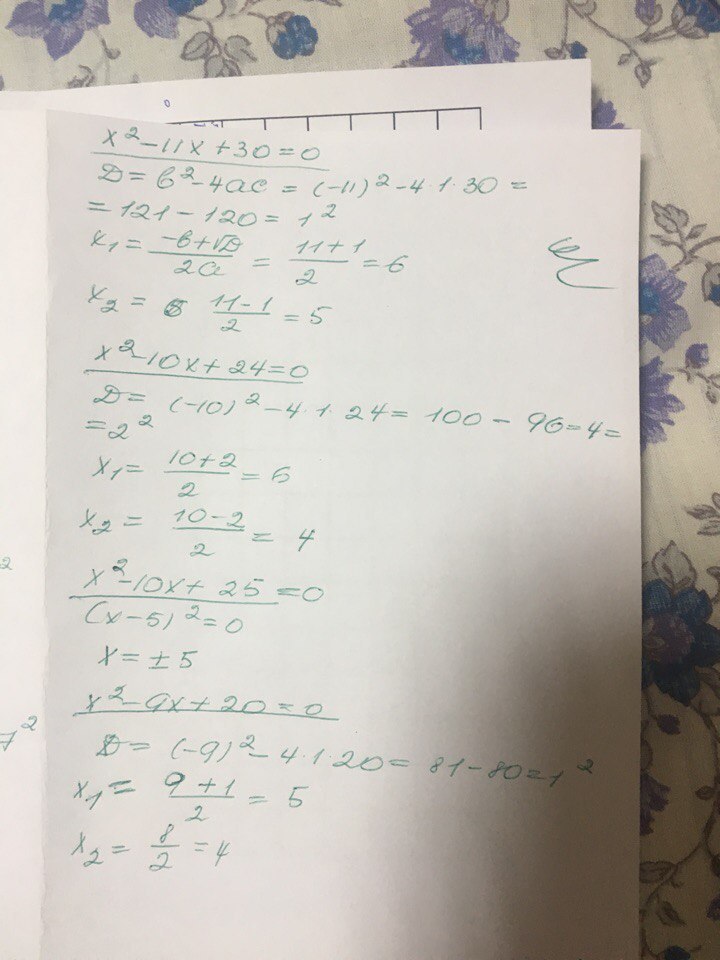 0
x² - 11x + 30 = 0
D = b² - 4ac = (-11)² - 4·1·30 =
= 121 - 120 = 1²
x₁ = (-b+√D)/2a = (11+1)/2 = 6
x₂ = (11-1)/2 = 5
x² - 10x + 24 = 0
D = (-10)² - 4·1·24 = 100 - 96 = 4 =
= 2²
x₁ = (10+2)/2 = 6
x₂ = (10-2)/2 = 4
x² - 10x + 25 = 0
(x-5)² = 0
x = ±5
x² - 9x + 20 = 0
D = (-9)² - 4·1·20 = 81 - 80 = 1²
x₁ = (9+1)/2 = 5
x₂ = 8/2 = 4
2
7²